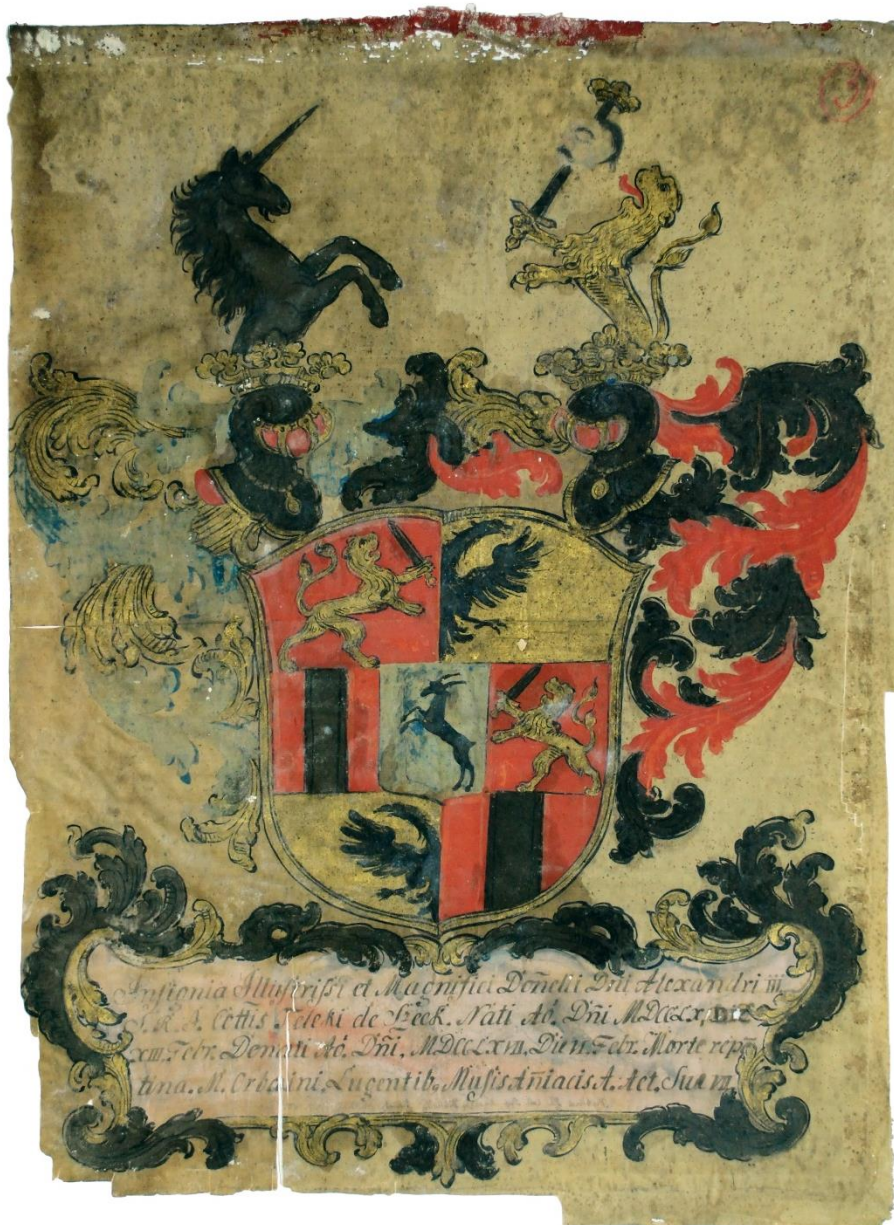 3
Insignia Illustrissi et Magnifici Doñelli Dñi Alexandri III.
S. R. I. Cottis Teleki de Szék. Nati Aó. Dñi MDCCLX, DIE
XIII. Febr. Denati Aó. Dñi. MDCCLXVII. Die Febr. Morte repñ
tina. M. Lugentib. Musis A. Aet. Suæ VII